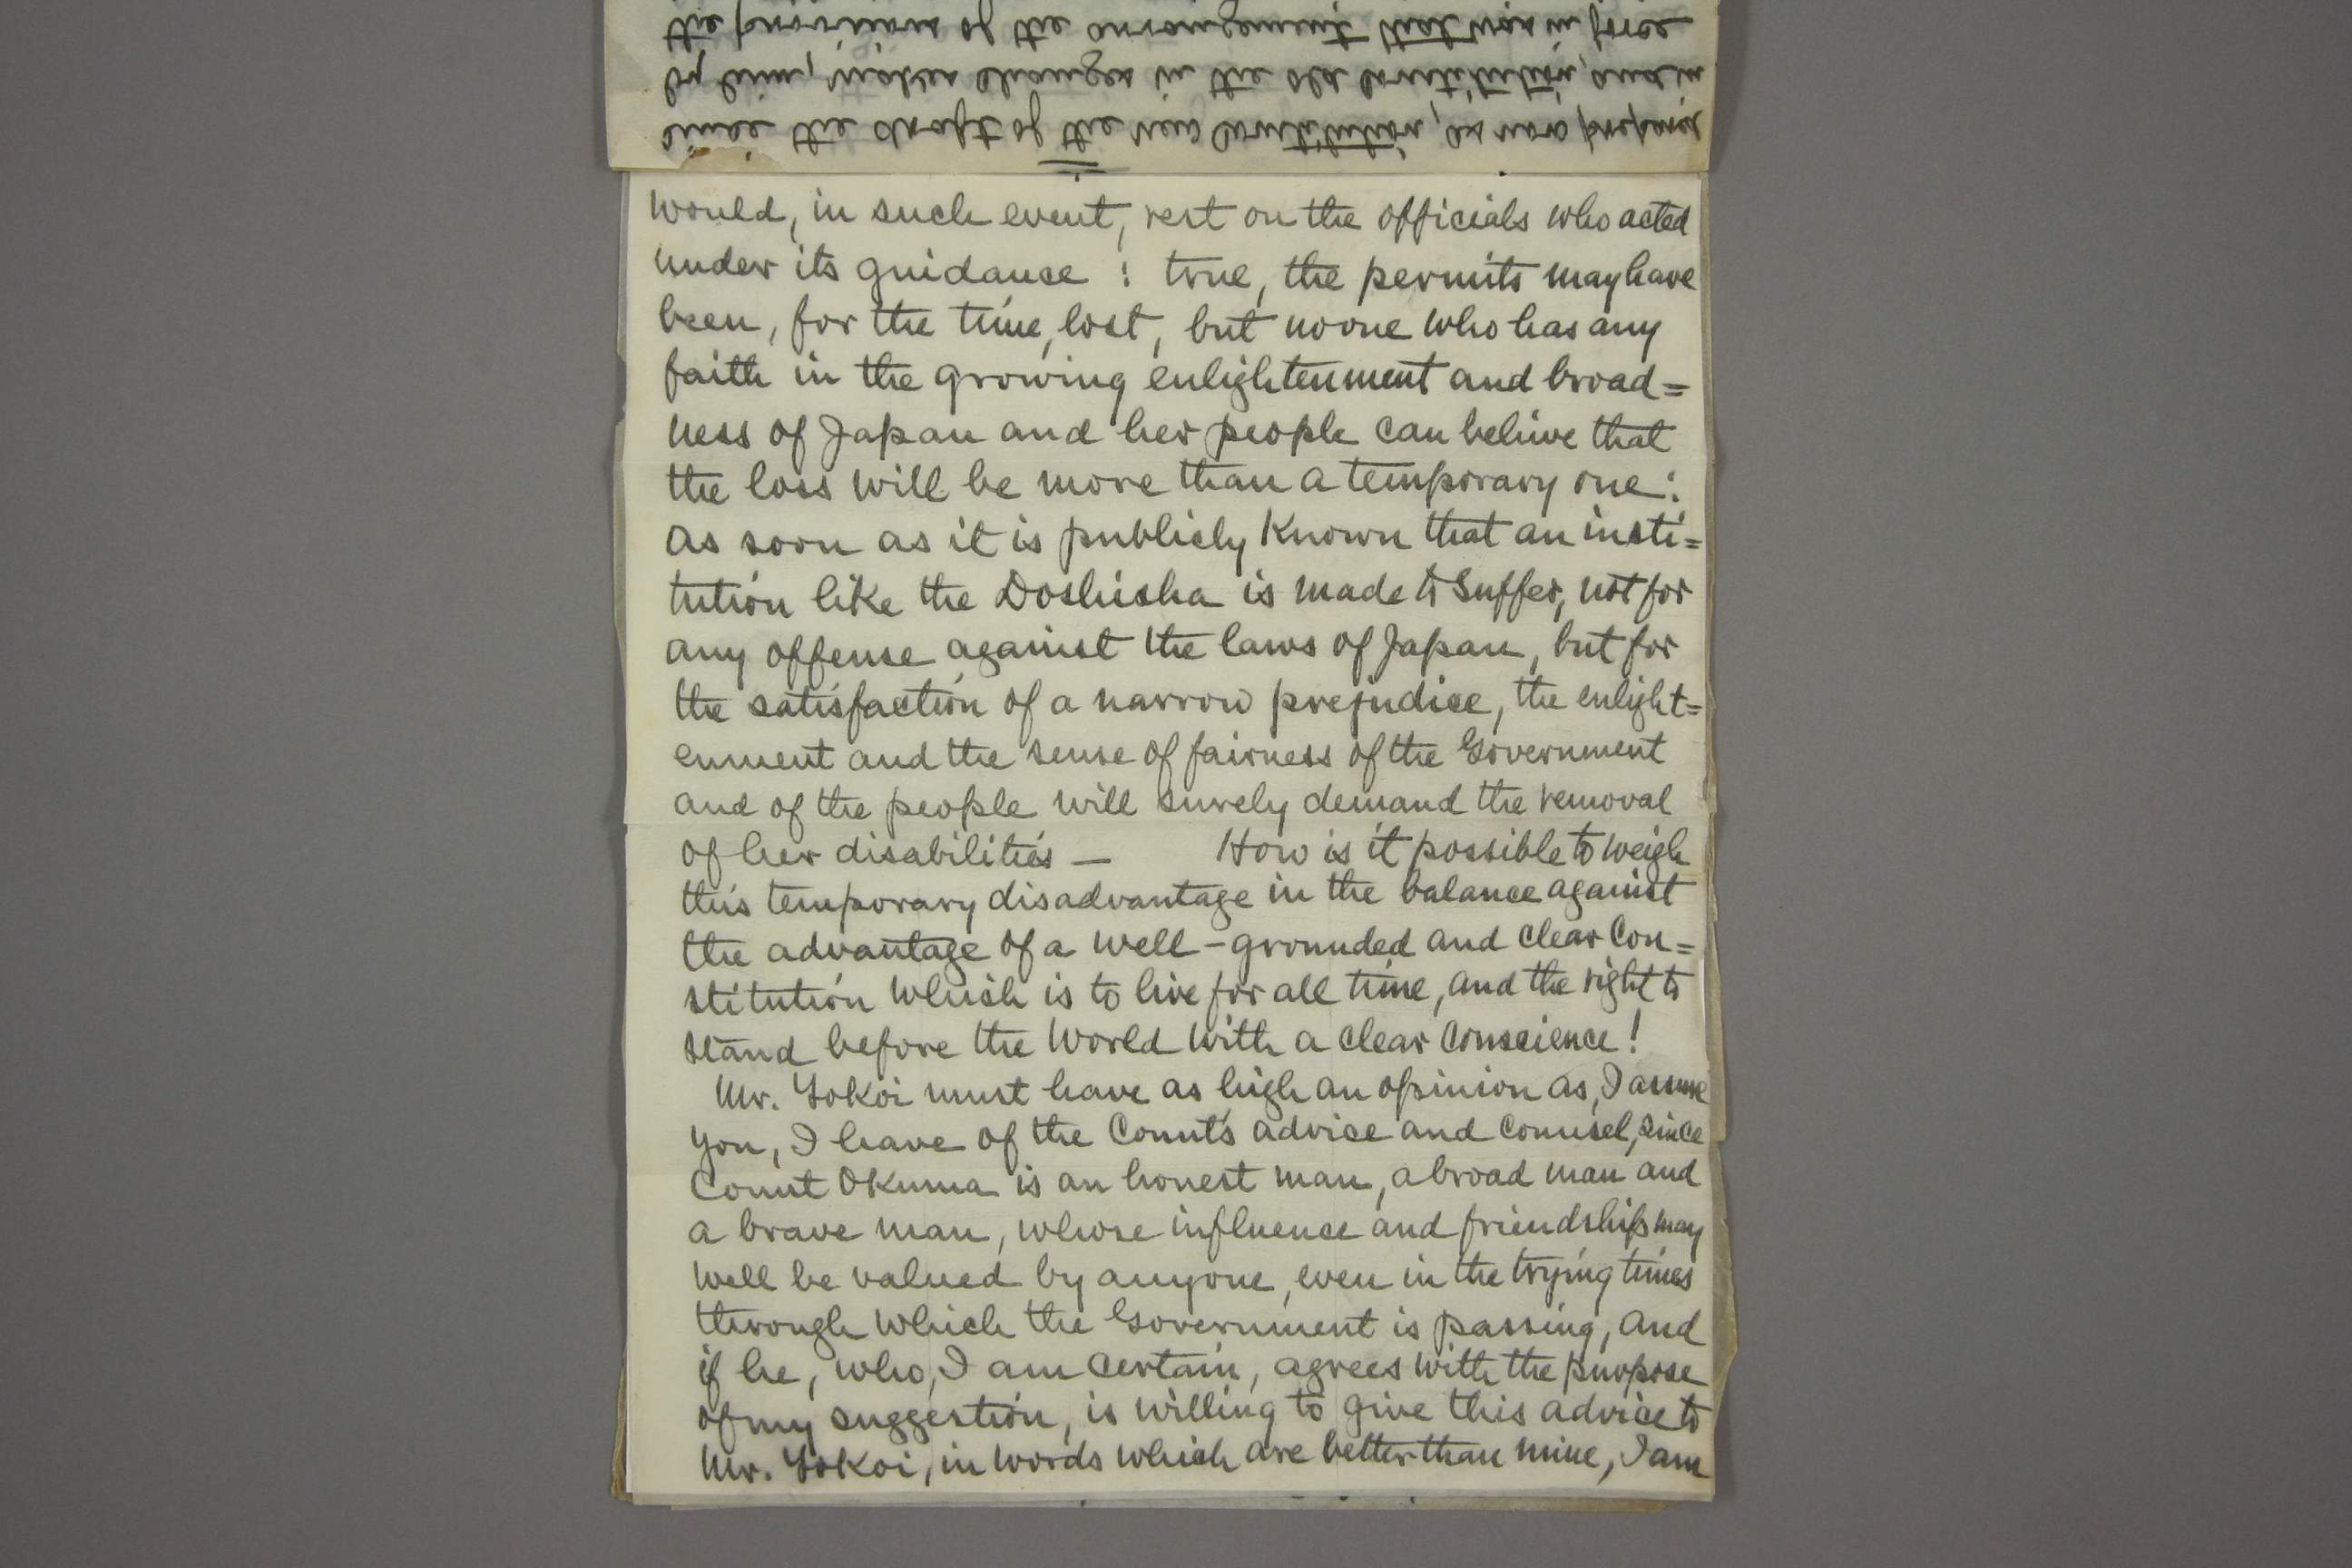 would, in such event, rest on the officials who acted
under its guidance : true, the permits may have
been, for the time, lost, but no one who has any
faith in the growing enlightenment and broad=
ness of Japan and her people can believe that
the loss will be more than a temporary one :
as soon as it is publicly known that an insti=
tution like the Doshisha is made to suffer, not for
any offense against the laws of Japan, but for
the satisfaction of a narrow prejudice, the enlight=
enment and the sense of fairness of the Government
and of the people will surely demand the removal
of her disabilities — How is it possible to weigh
this temporary disadvantage in the balance against
the advantage of a well-grounded and clear Con=
stitution which is to live for all time, and the right to
stand before the world with a clear conscience!
Mr. Yokoi must have as high an opinion as, I assure
you, I have of the Count's advice and counsel, since
Count Okuma is an honest man, a broad man and
a brave man, whose influence and friendship may
well be valued by anyone, even in the trying times
through which the Government is passing, and
if he, who, I am certain, agrees with the purpose
of my suggestion, is willing to give this advice to
Mr. Yokoi, in words which are better than mine, I am